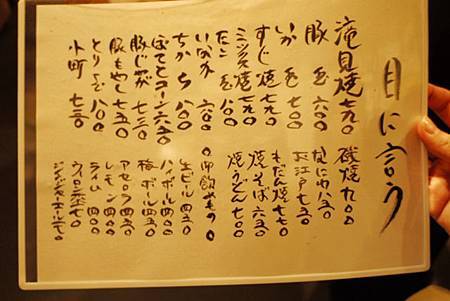 目に言う
滝見焼 七九〇
豚玉 六〇〇
いか玉 七〇〇
すじ焼 七九〇
ミックス焼 七九〇
たこ玉
いなか 六〇〇
ちから 八〇〇
ぽてとコーン 六五〇
豚じゃが 七三〇
豚もやし 七五〇
とり玉 八〇〇
小町 七三〇
磯焼 九〇〇
なにわ 八五〇
お江戸 七五〇
もだん焼 七七〇
焼そば 六五〇
焼うどん 七〇〇
◎御飲みもの◎
生ビール 四五〇
ハイボール 四五〇
梅ボール 四五〇
アセロラ 四五〇
レモン 四〇〇
ライム 四〇〇
ウーロン茶
ジンジャーエール